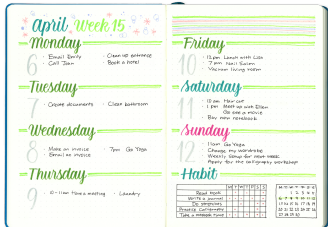 april Week 15
Monday
6
· Email Emily
· Call John
· Clean up entrance
· Book a hotel
Tuesday
7
· Create documents
· Clean bathroom
Wednesday
8
· Make an invoice
Email an invoice
· 7pm Go Yoga
Thursday
9
· 10-11am Have a meeting
· Laundry
Friday
10
· 12pm Lunch with Lisa
· 7pm Nail Salon
· Vacuum living room
Saturday
11
· 10am Hair cut
· 1pm Meet up with Ellen
Go see a movie
· Buy new notebook
Sunday
12
11am Go Yoga
Choose my wardrobe
Weekly Setup for next week
Apply for the calligraphy workshop
Habit
M T W T F S S
Read books
Write a journal
Do exercises
Practice Calligraphy
M T W T F S S
1 2 3 4 5
6 7 8 9 10 11 12
13 14 15 16 17 18 19
20 21 22 23 24 25 26
27 28 29 30